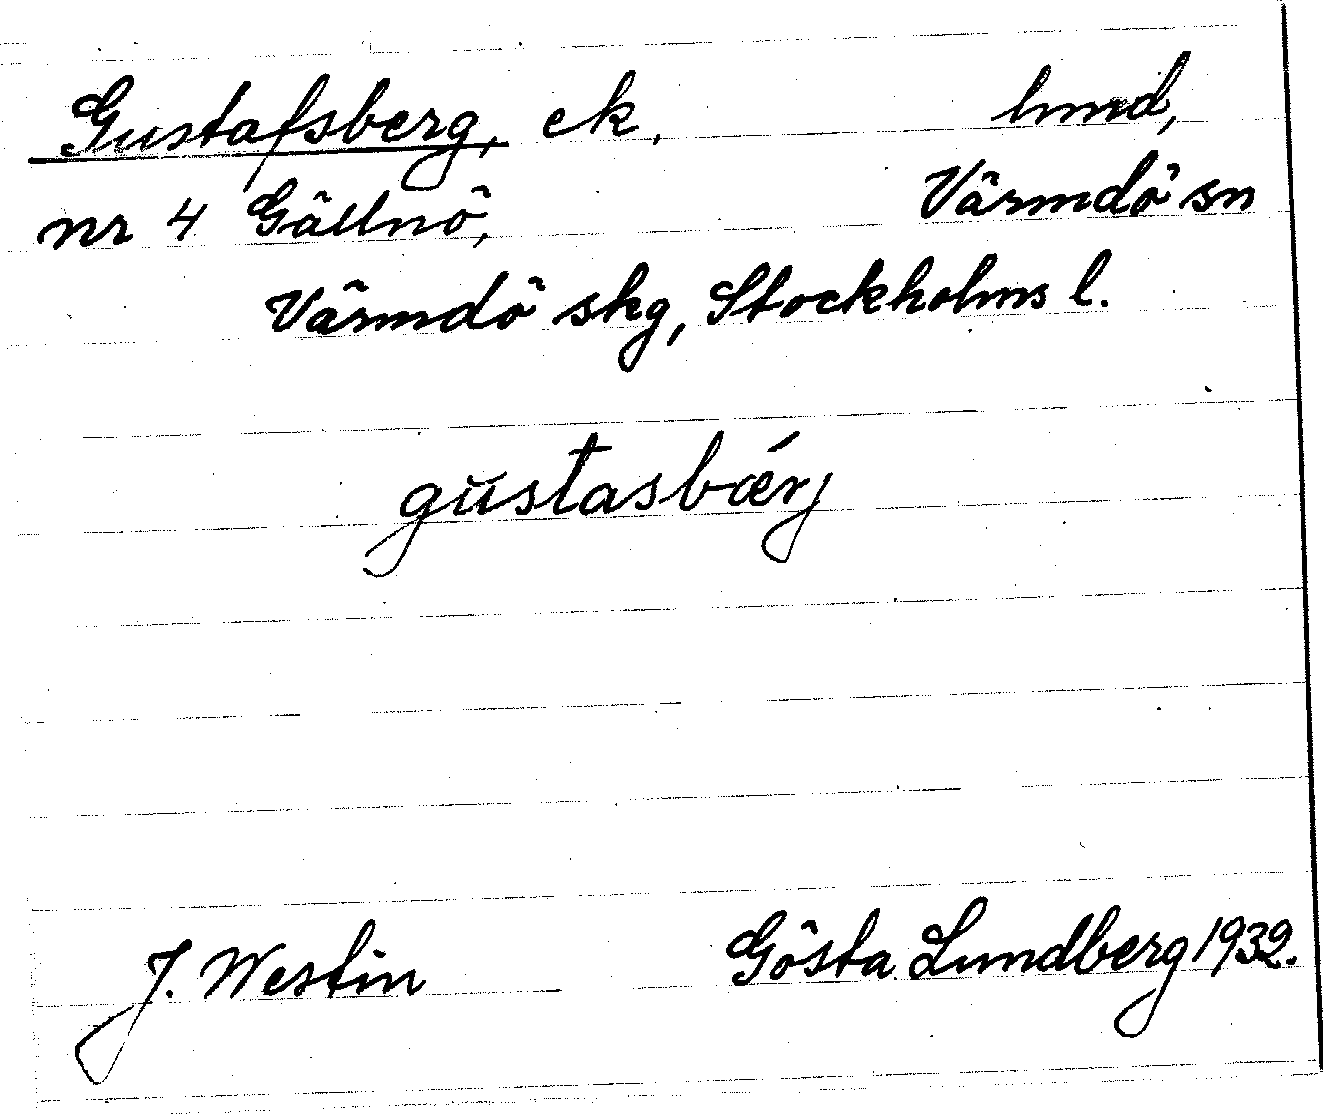 Gustafsberg, ek, lmrd,
nr 4 Gällnö, Värmdö sn
Värmdö skg, Stockholms l.
gŭstasbǽrj
J. Westin Gösta Lundberg 1932.